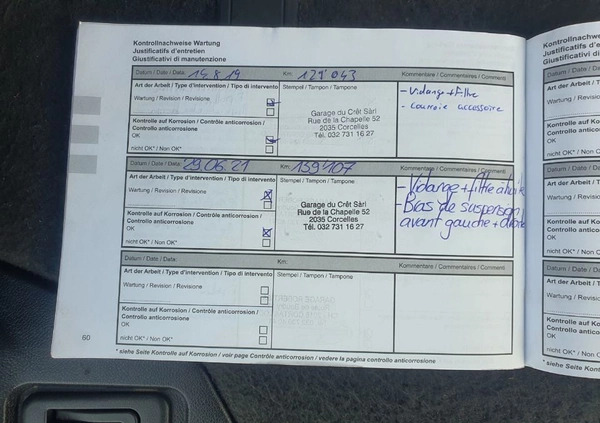 Kontrollnachweise Wartung
Justificatifs d'entretien
Giustificativi di manutenzione
Datum / Date / Data: 14.8.19 Km: 121'043 Kommentare / Commentaires / Commenti
Art der Arbeit / Type d'intervention / Tipo di intervento Stempel / Tampon / Tampone
Wartung / Revision / Revisione
- Vidange + filtre
- courroie accessoire
Garage du Crêt Sàrl
Rue de la Chapelle 52
2035 Corcelles
Tél. 032 731 16 27
Kontrolle auf Korrosion / Contrôle anticorrosion /
Controllo anticorrosione
OK
nicht OK* / Non OK*
Datum / Date / Data: 29.06.21 Km: 139'407 Kommentare / Commentaires / Commenti
Art der Arbeit / Type d'intervention / Tipo di intervento Stempel / Tampon / Tampone
Wartung / Revision / Revisione
- Vidange + filtre à huile
- Bras de suspension
avant gauche + droite
Garage du Crêt Sàrl
Rue de la Chapelle 52
2035 Corcelles
Tél. 032 731 16 27
Kontrolle auf Korrosion / Contrôle anticorrosion /
Controllo anticorrosione
OK
nicht OK* / Non OK*
Datum / Date / Data: Km: Kommentare / Commentaires / Commenti
Art der Arbeit / Type d'intervention / Tipo di intervento Stempel / Tampon / Tampone
Wartung / Revision / Revisione
Kontrolle auf Korrosion / Contrôle anticorrosion /
Controllo anticorrosione
OK
nicht OK* / Non OK*
60
* siehe Seite Kontrolle auf Korrosion / voir page Contrôle anticorrosion / vedere la pagina controllo anticorrosione
Kontrollnachwe
Justificatifs d'e
Giustificativi di
Datum / Date / Data:
Art der Arbeit / T
Wartung / Revision
Kontrolle auf Ko
Controllo antico
OK
nicht OK* / Non O
Datum / Date / D
Art der Arbeit /
Wartung / Revisi
Kontrolle auf K
Controllo antic
OK
nicht OK* / Non
Datum / Date /
Art der Arbeit
Wartung / Revis
Kontrolle auf
Controllo anti
OK
nicht OK* / No
* siehe Seite Kont